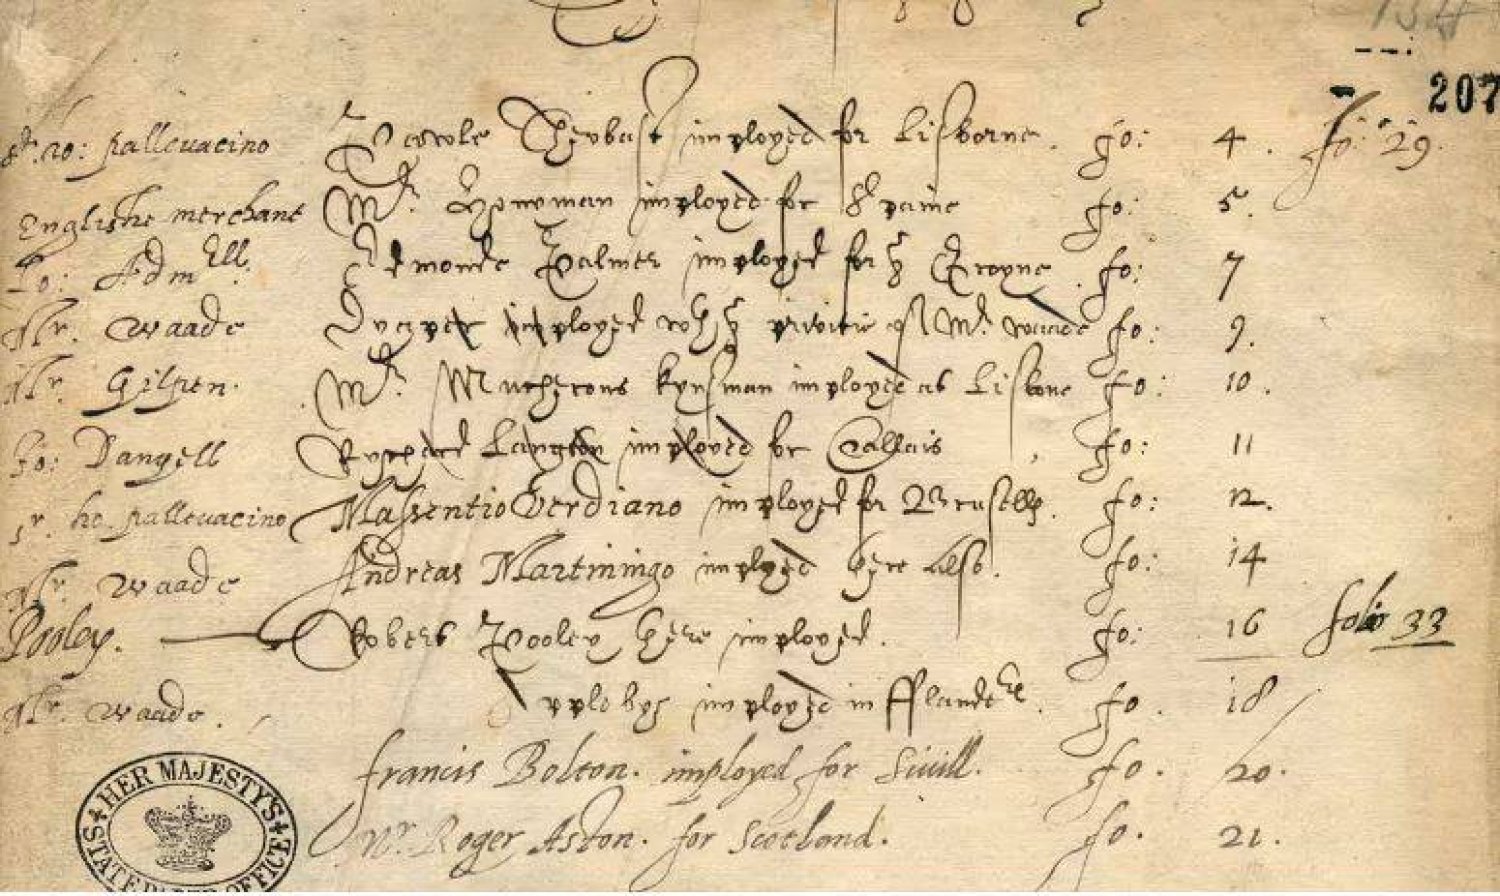 207
Sr. Ho: Pallevacino Pawle Theobast imployed for Lisborne. fo: 4. fo: 29.
Englishe merchant Mr. Honyman imployed for Spaine fo: 5.
Lo: Admell. Edmonde Palmer imployed for ye Groyne. fo: 7
Mr. Waade imployed wth ye privitie of Mr. Waade fo: 9.
Mr. Gilpen. Mr. kynsman imployed at Lisbone fo: 10.
Jo: Dangell Rychard Langton imployed for Callais fo: 11
Sr. Ho Pallevacino Massentio Verdiano imployed for Brusells. fo: 12.
Mr. Waade Andreas Martiningo imployed here also. fo: 14
Pooley. Robert Pooley here imployed. fo: 16 folio 33
Mr. Waade. imployed in Flanders. fo. 18
francis Bolton. imployed for Sivill. fo. 20.
Mr. Roger Aston. for Scotland. fo. 21.
HER MAJESTY'S
STATE PAPER OFFICE